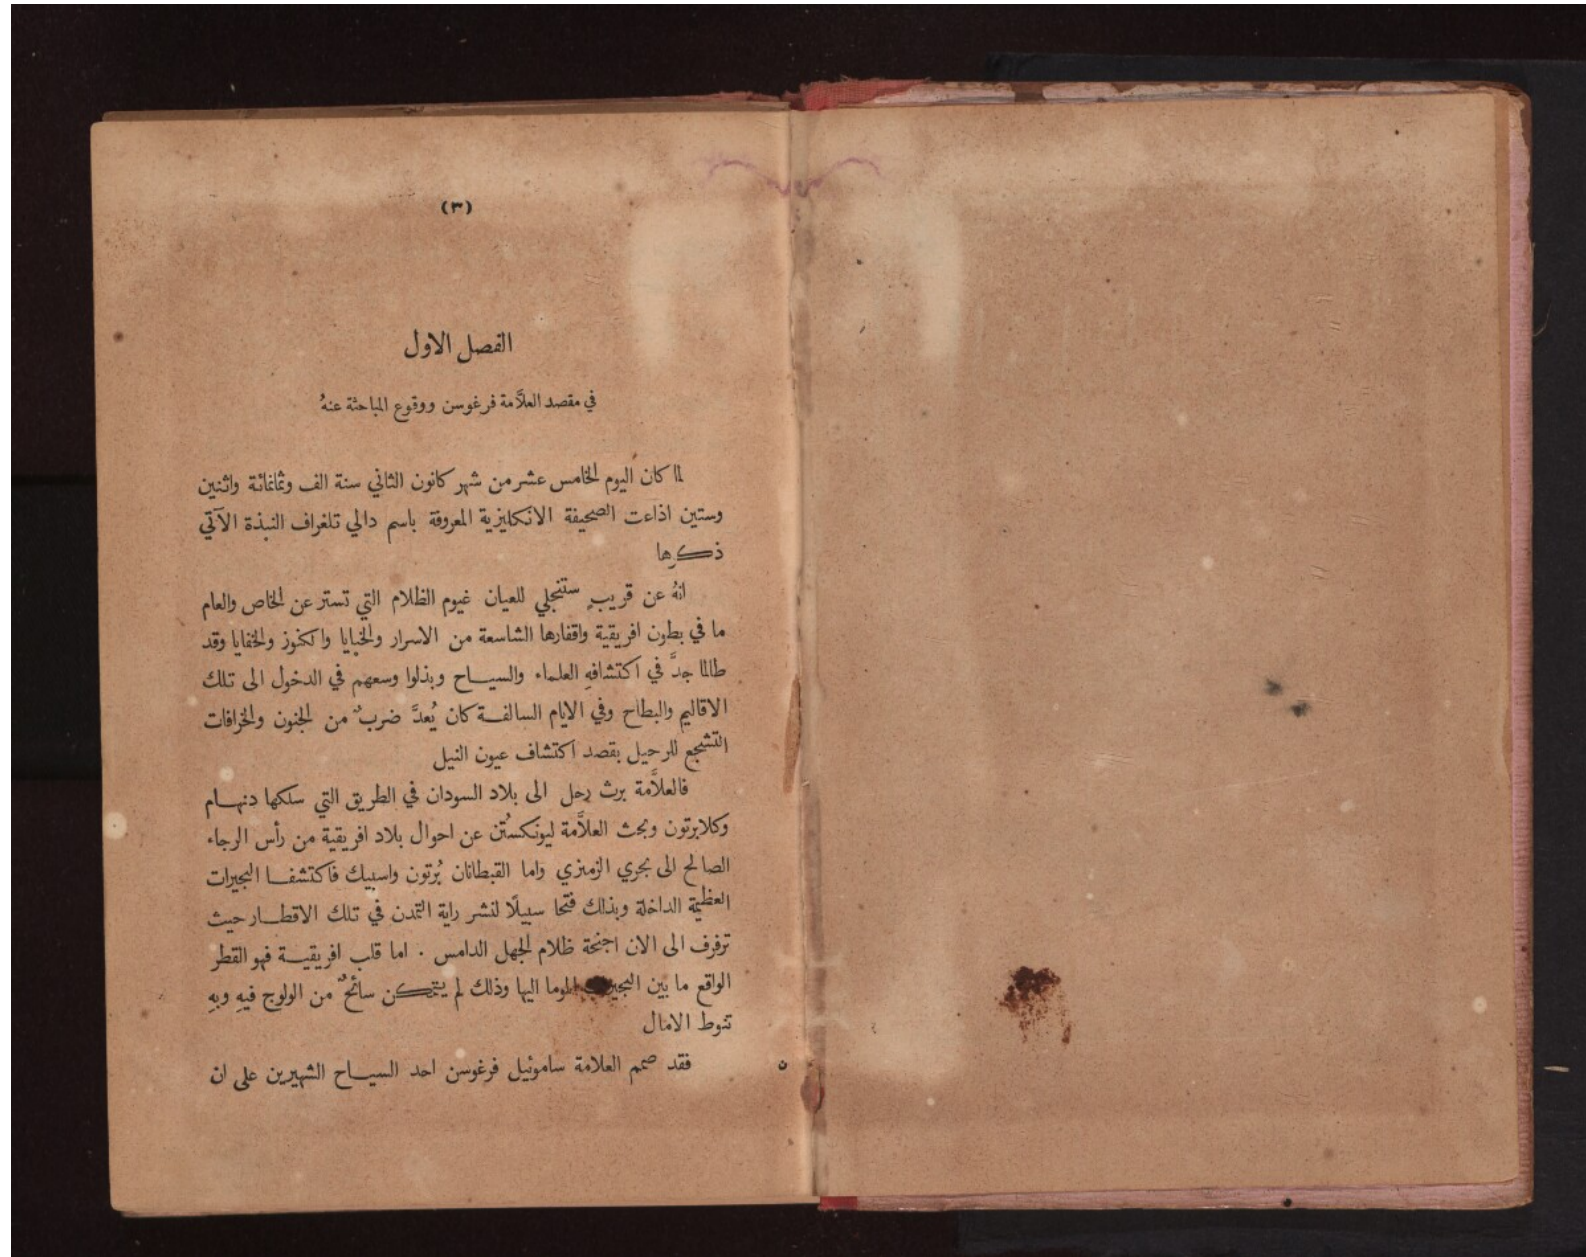 (٣)
الفصل الاول
في مقصد العلَّامة فرغوسن ووقوع المباحثة عنهُ
لما كان اليوم الخامس عشر من شهر كانون الثاني سنة الف وثمانمائة واثنين
وستين اذاعت الصحيفة الانكليزية المعروفة باسم دالي تلغراف النبذة الآتي
ذكرها
انهُ عن قريبٍ ستنجلي للعيان غيوم الظلام التي تستر عن الخاص والعام
ما في بطون افريقية واقفارها الشاسعة من الاسرار والخبايا والكنوز والخفايا وقد
طالما جدَّ في اكتشافهِ العلماء والسياح وبذلوا وسعهم في الدخول الى تلك
الاقاليم والبطاح وفي الايام السالفة كان يُعدَّ ضربٌ من الجنون والخرافات
التشجع للرحيل بقصد اكتشاف عيون النيل
فالعلاَّمة برث رحل الى بلاد السودان في الطريق التي سلكها دنهام
وكلابرتون وبحث العلاَّمة ليونكستُن عن احوال بلاد افريقية من رأس الرجاء
الصالح الى بحري الزمبزي واما القبطانان بُرتون واسبيك فاكتشفا البحيرات
العظيمة الداخلة وبذلك فتحا سبيلًا لنشر راية التمدن في تلك الاقطار حيث
ترفرف الى الان اجنحة ظلام الجهل الدامس . اما قلب افريقية فهو القطر
الواقع ما بين الموما اليها وذلك لم يتمكن سائحٌ من الولوج فيهِ وبهِ
تنوط الامال
فقد صمم العلامة ساموئيل فرغوسن احد السياح الشهيرين على ان